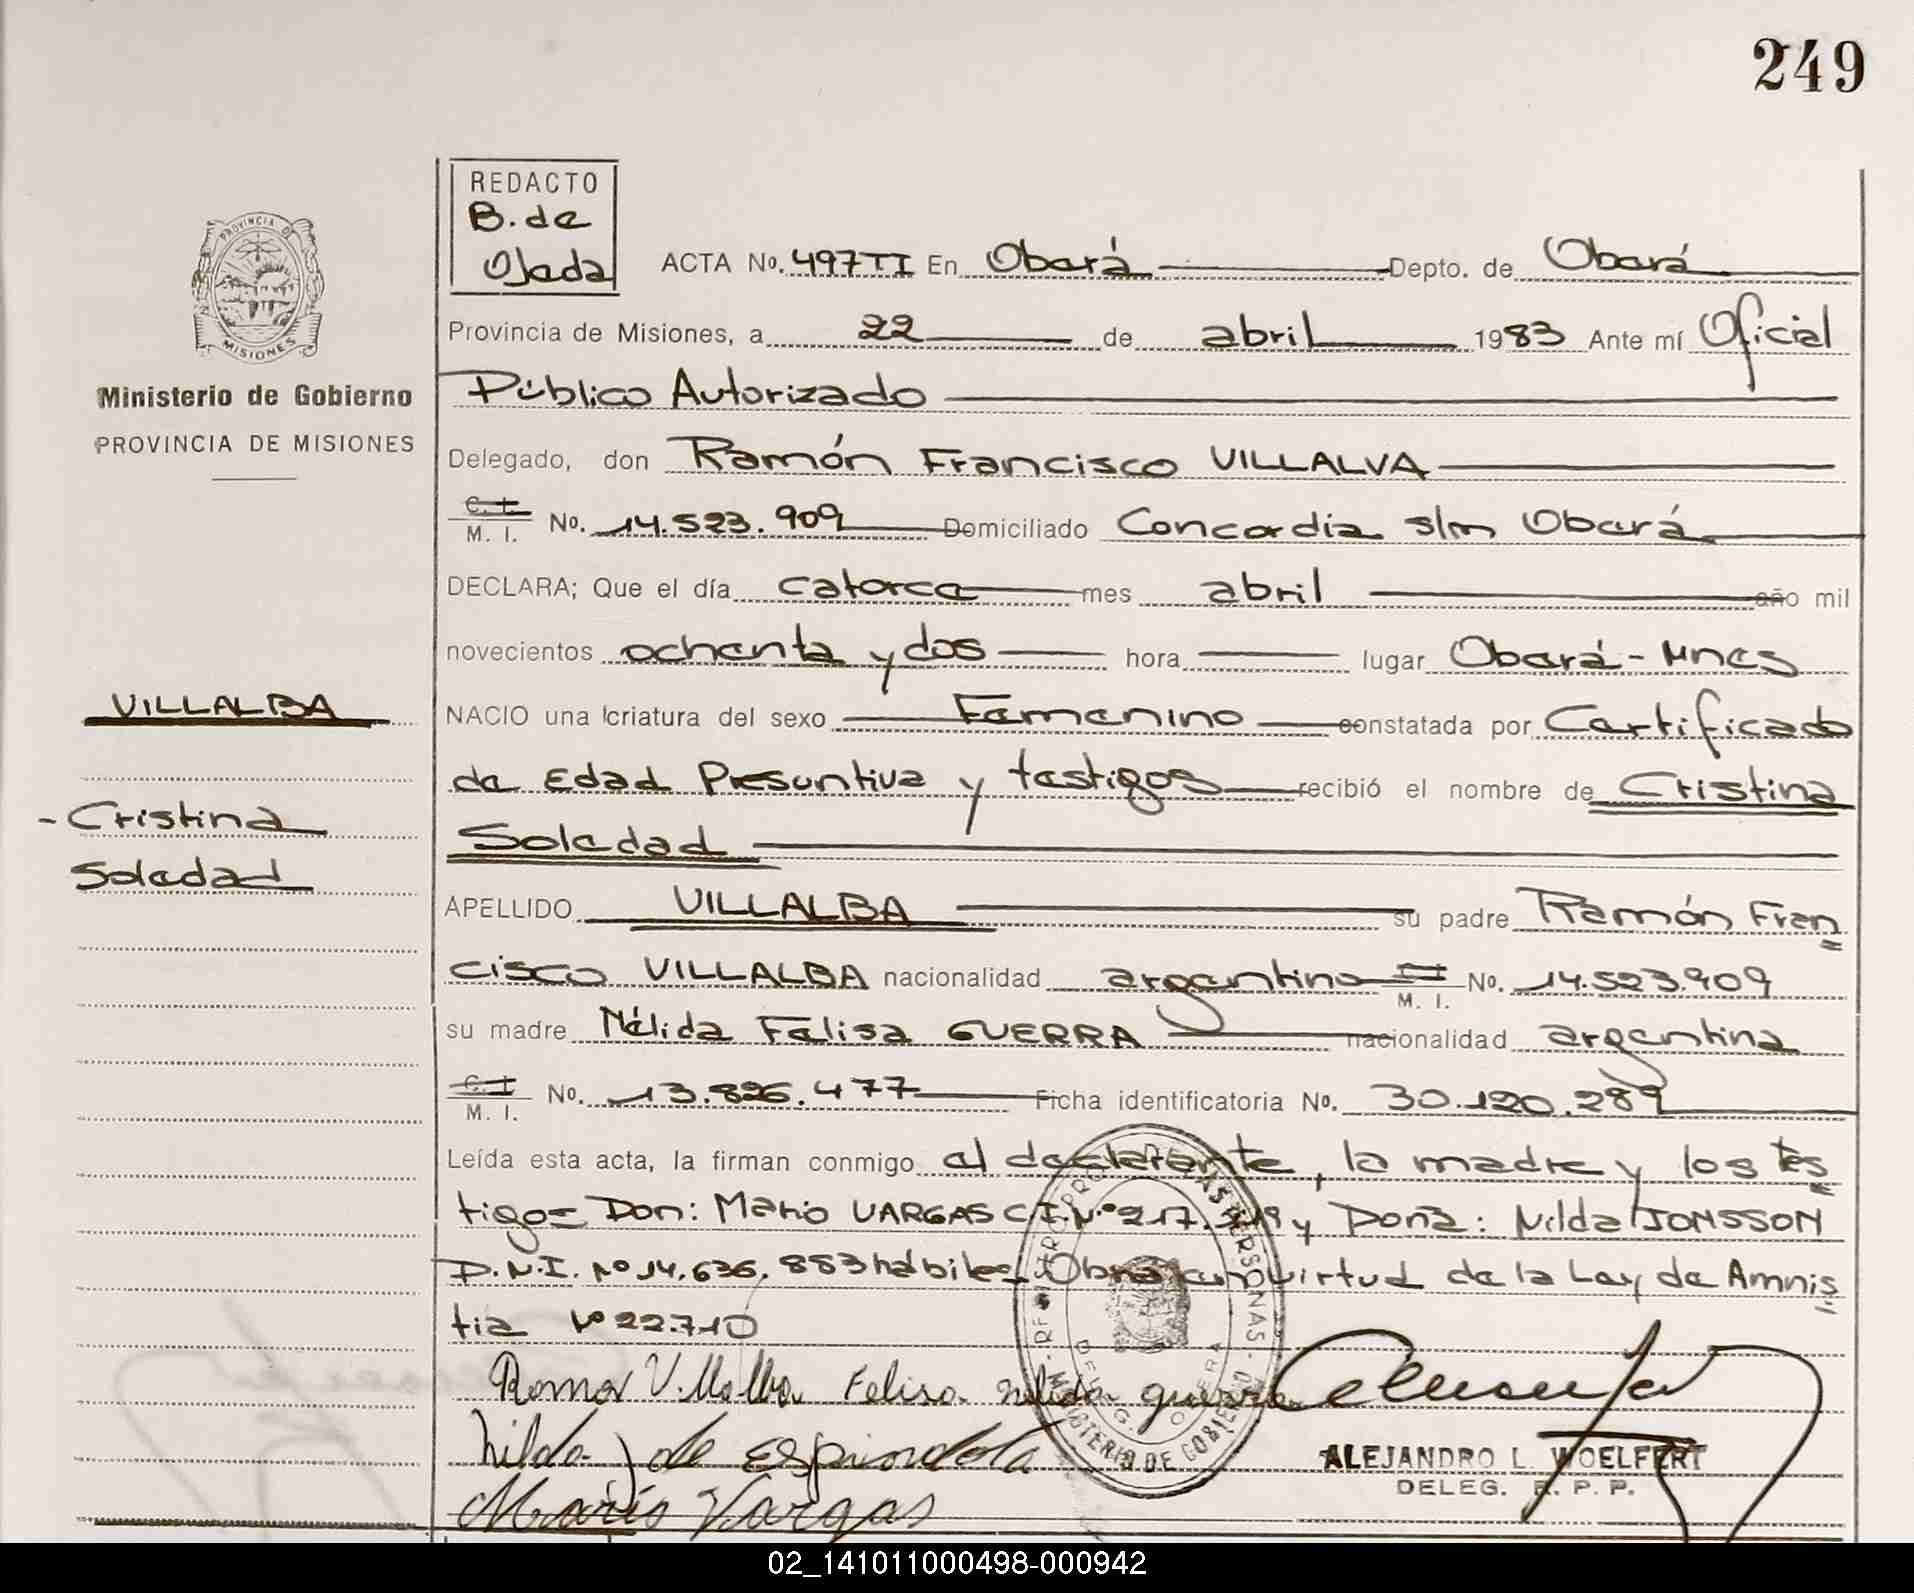 249
REDACTO
B. de
Ojeda
ACTA No. 497TI En Oberá Depto. de Oberá
Provincia de Misiones, a 22 de abril 1983 Ante mí Oficial
Público Autorizado
Delegado, don Ramón Francisco VILLALVA
C. I. M. I. No. 14.523.909 Domiciliado Concordia s/n Oberá
DECLARA; Que el día catorce mes abril año mil
novecientos ochenta y dos hora lugar Oberá - Mnes
NACIO una criatura del sexo Femenino constatada por Certificado
de Edad Presuntiva y testigos recibió el nombre de Cristina
Soledad
APELLIDO VILLALBA su padre Ramón Fran
cisco VILLALBA nacionalidad argentino M. I. No. 14.523.909
su madre Nélida Felisa GUERRA nacionalidad argentina
C. I. M. I. No. 13.826.477 Ficha identificatoria No. 30.120.289
Leída esta acta, la firman conmigo el declarante, la madre y los tes
tigos Don: Mario VARGAS C.I. Nº 217. y Doña: Nilda JONSSON
D.N.I. Nº 14.636.883 hábiles. Obra en virtud de la Ley de Amnis
tia Nº 22.710
Ramon Villalba Felisa nelida guerra
Nilda J de Espindola
Mario Vargas
ALEJANDRO L. WOELFERT
DELEG. R. P. P.
PROVINCIA DE
MISIONES
Ministerio de Gobierno
PROVINCIA DE MISIONES
VILLALBA
- Cristina
Soledad
MINISTERIO DE GOBIERNO
02_141011000498-000942